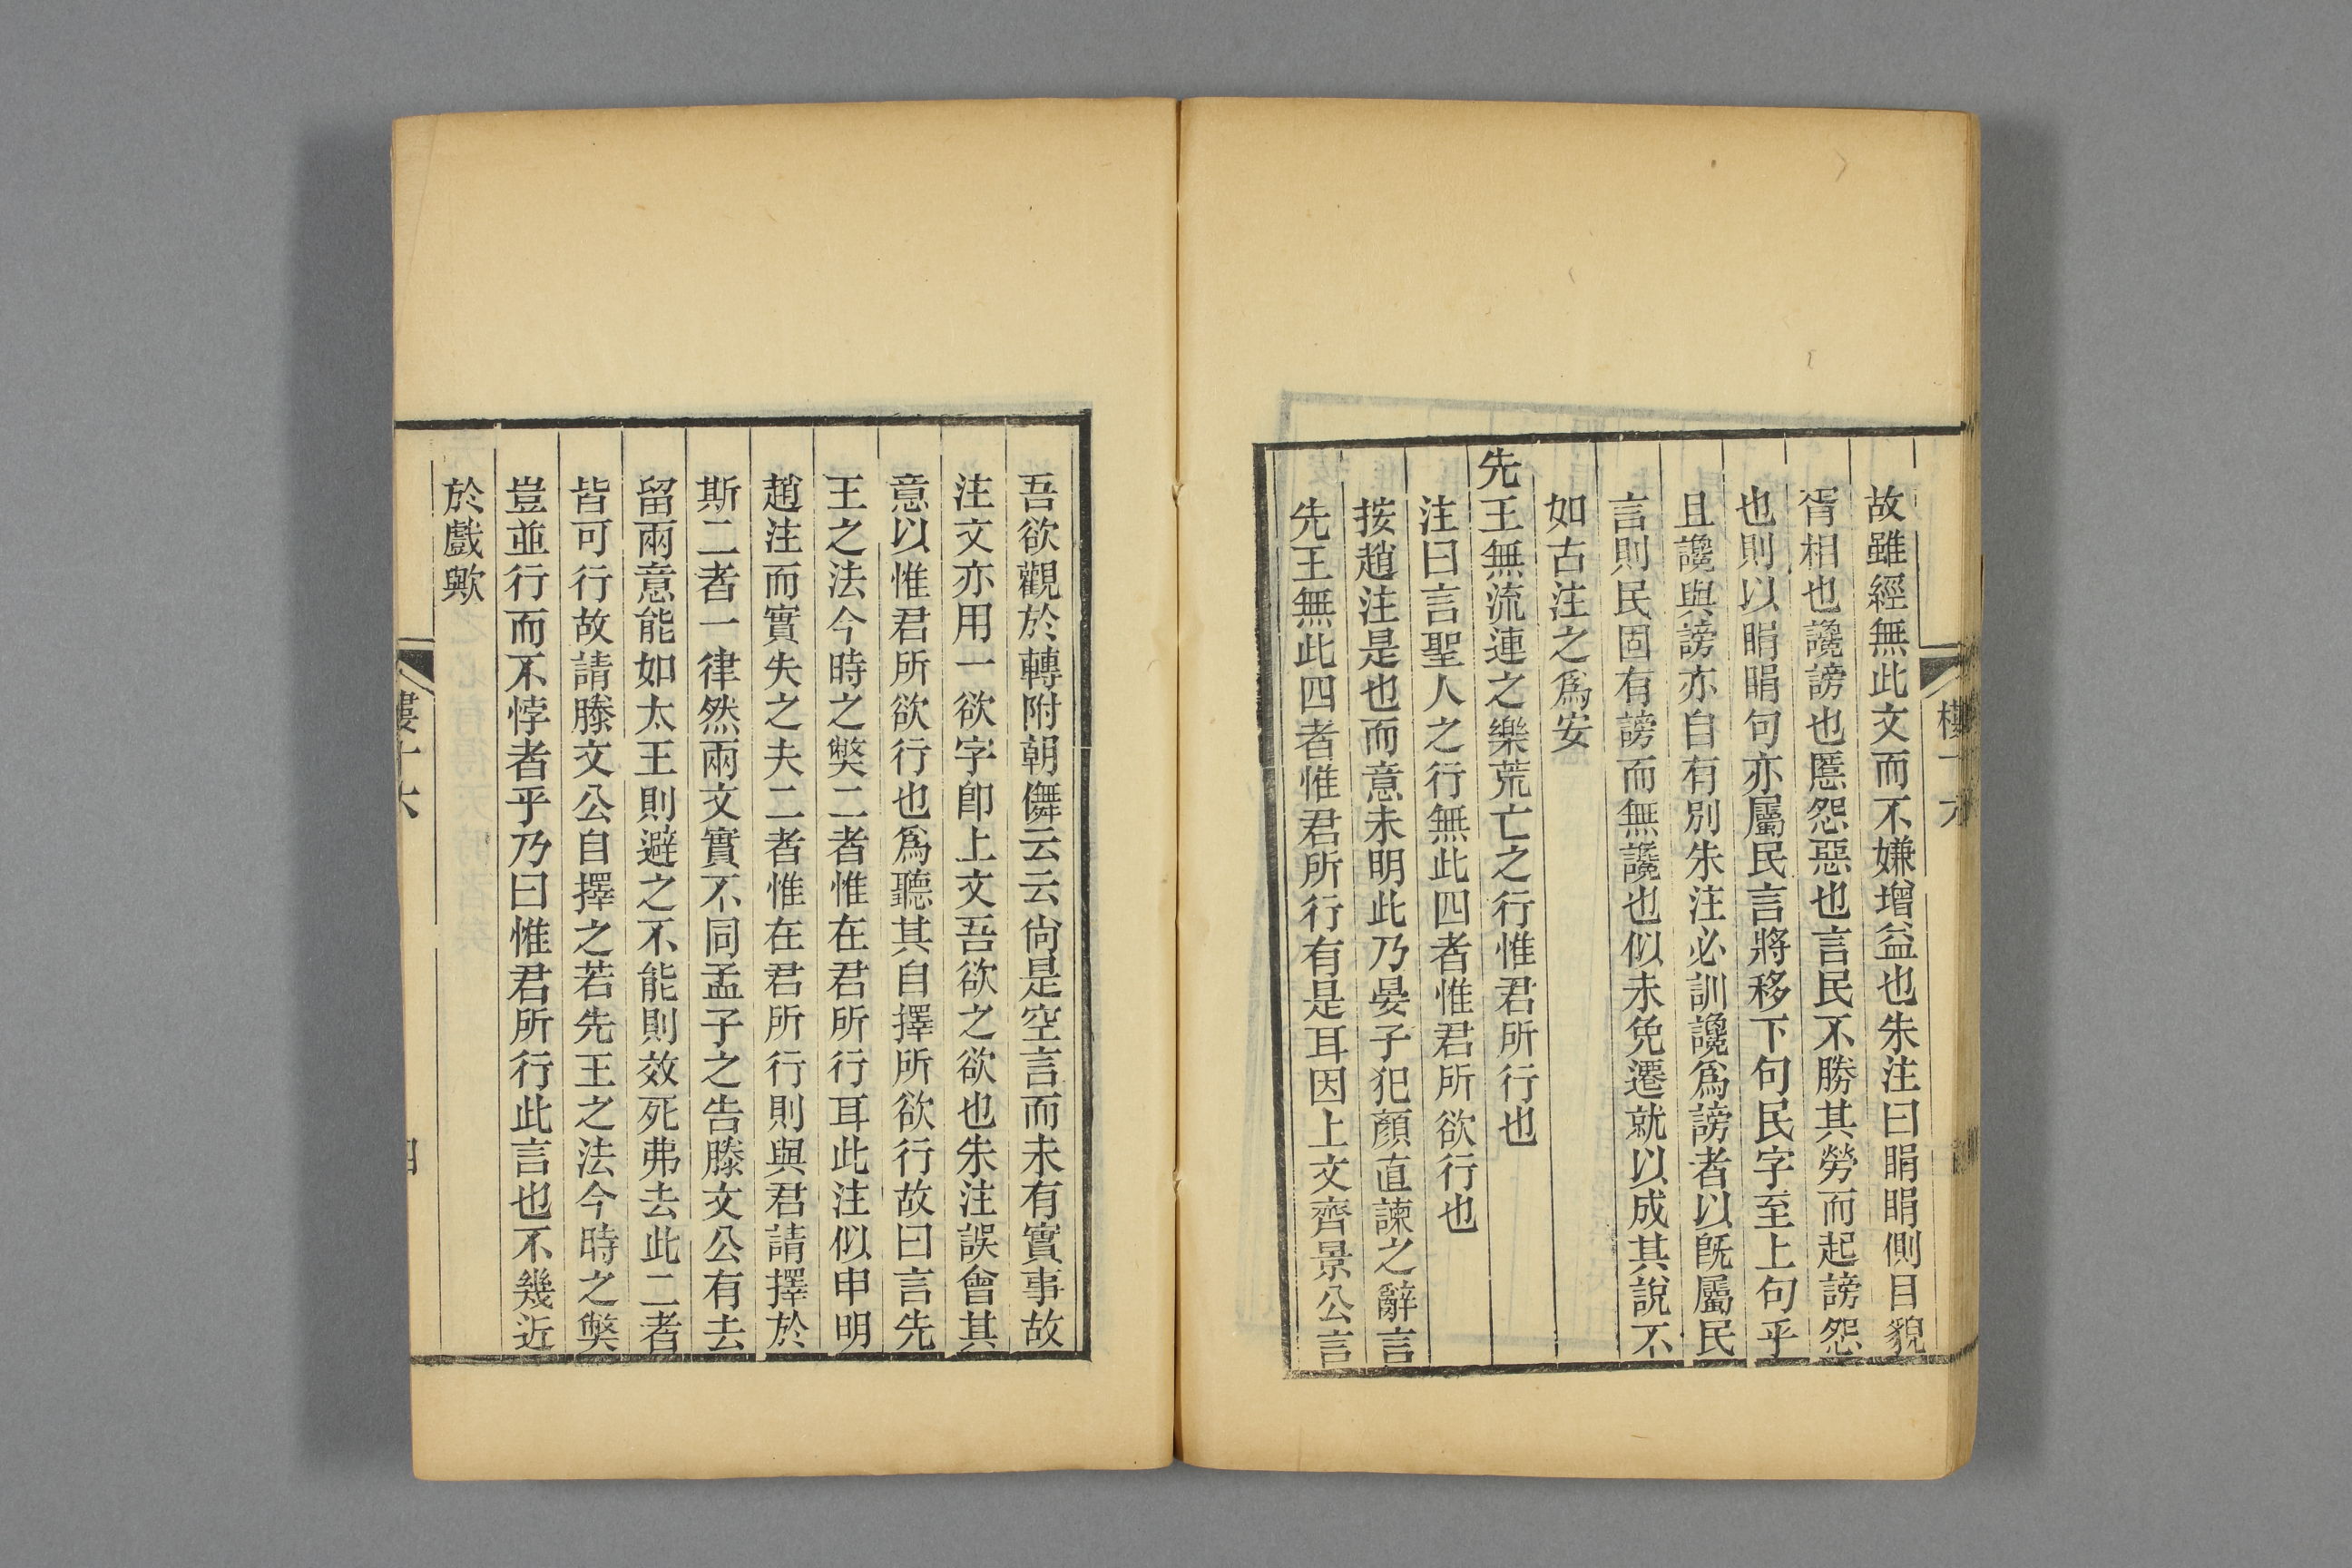 故雖經無此文而不嫌增益也朱注曰睊睊側目貌
胥相也讒謗也慝怨惡也言民不勝其勞而起謗怨
也則以睊睊句亦屬民言將移下句民字至上句乎
且讒與謗亦自有別朱注必訓讒爲謗者以旣屬民
言則民固有謗而無讒也似未免遷就以成其說不
如古注之爲安
先王無流連之樂荒亡之行惟君所行也
注曰言聖人之行無此四者惟君所欲行也
按趙注是也而意未明此乃晏子犯顏直諫之辭言
先王無此四者惟君所行有是耳因上文齊景公言
吾欲觀於轉附朝儛云云尙是空言而未有實事故
注文亦用一欲字卽上文吾欲之欲也朱注誤會其
意以惟君所欲行也爲聽其自擇所欲行故曰言先
王之法今時之獘二者惟在君所行耳此注似申明
趙注而實失之夫二者惟在君所行則與君請擇於
斯二者一律然兩文實不同孟子之告滕文公有去
留兩意能如太王則避之不能則效死弗去此二者
皆可行故請滕文公自擇之若先王之法今時之獘
豈並行而不悖者乎乃曰惟君所行此言也不幾近
於戲歟
樓十六
四